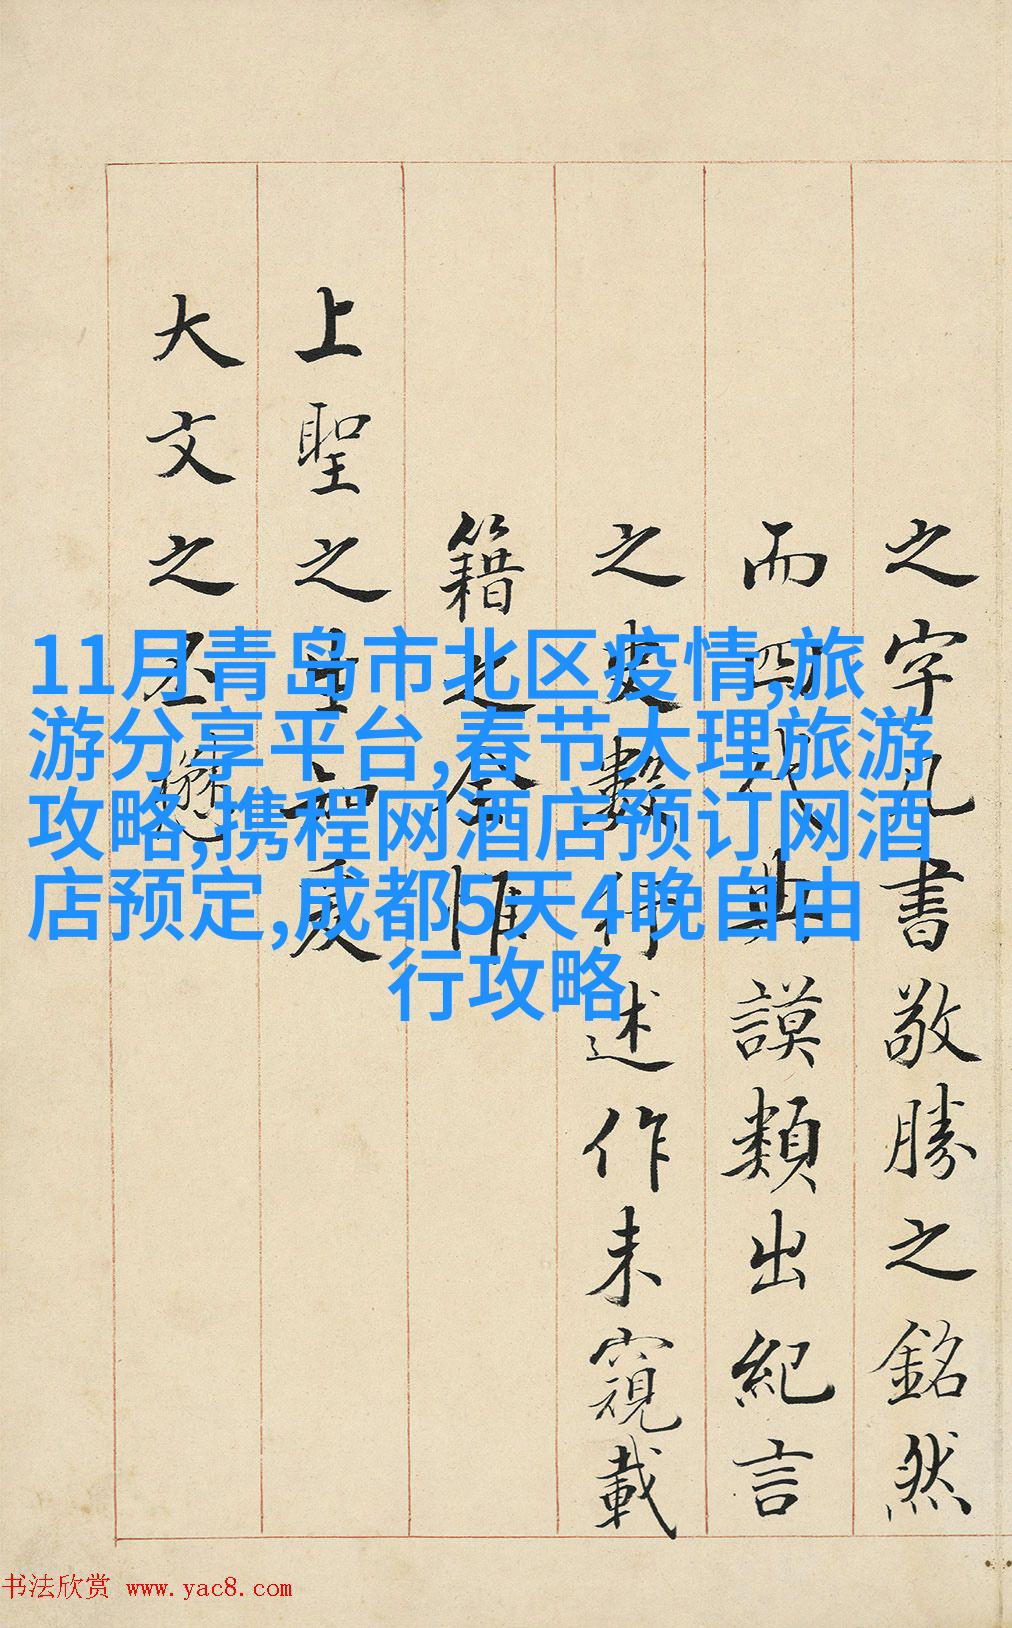 11月青岛市北区疫情,旅
游分享平台,春节大理旅游
攻略,携程网酒店预订网酒
店预定,成都5天4晚自由
行攻略
之字几書敬勝之銘然
而四代典謨類出紀言
之史數行述作未窺載
籍之全惟
上聖之生知
大文之丕
书法欣赏 www.yac8.com